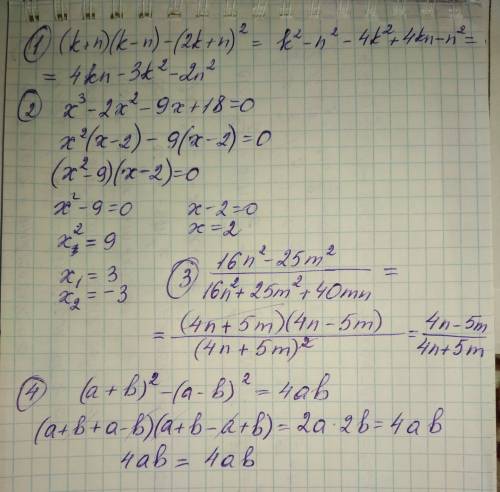 ① (k+n)(k-n)-(2k+n)² = k²-n²-4k²+4kn-n²=
= 4kn-3k²-2n²
② x³-2x²-9x+18=0
x²(x-2)-9(x-2)=0
(x²-9)(x-2)=0
x²-9=0 x-2=0
x²=9 x=2
x₁=3
x₂=-3
③ (16n²-25m²)/(16n²+25m²+40mn) =
= ((4n+5m)(4n-5m))/((4n+5m)²) = (4n-5m)/(4n+5m)
④ (a+b)²-(a-b)²=4ab
(a+b+a-b)(a+b-a+b)=2a·2b=4ab
4ab=4ab